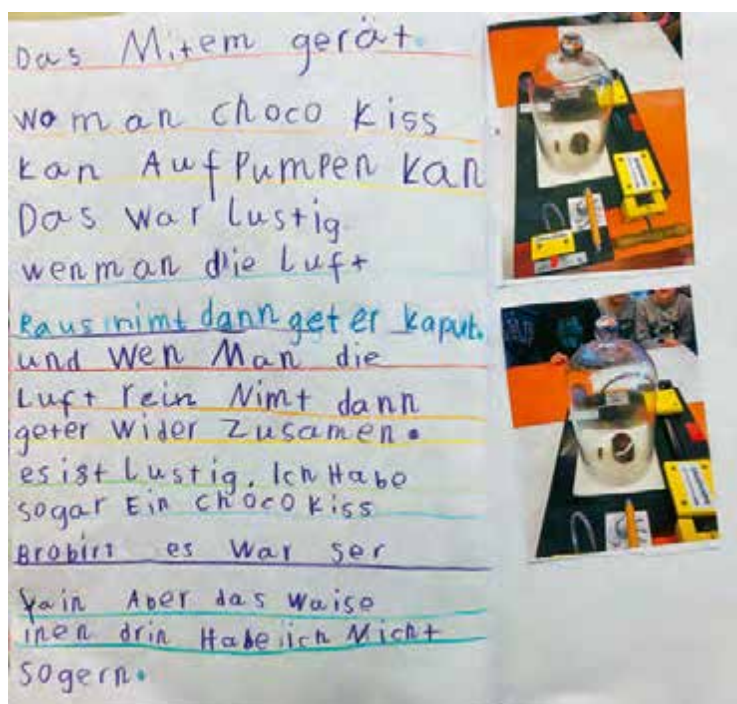 Das Mitem gerät.
wo man choco kiss
kan Auf Pumpen kan
Das war Lustig
wenman die Luft
Raus nimt dann get er kaput.
und wen Man die
Luft rein Nimt dann
geter wider Zusamen.
es ist Lustig. Ich Habe
sogar Ein choco kiss
Brobirt es war ser
Fain Aber das waise
inen drin Habe ich Nicht
sogern.